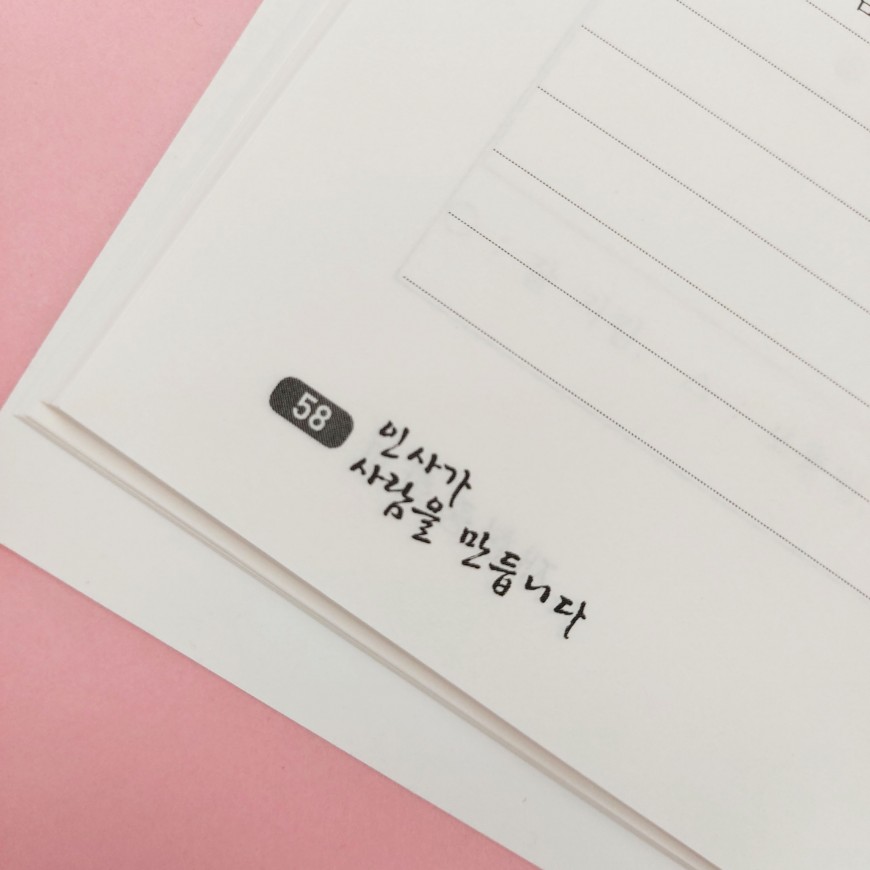 58
인사가
사람을 만듭니다